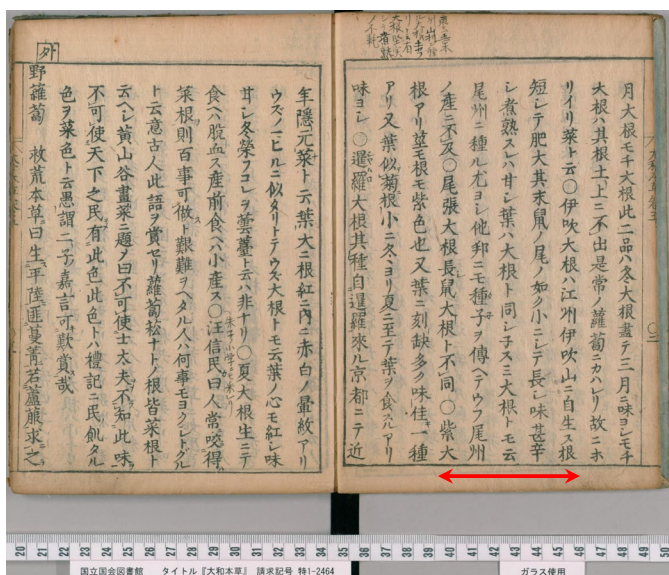 月大根モチ大根此二品ハ冬大根盡テ三月ニ味ヨシモチ
大根ハ其根土上ニ不出是常ノ蘿蔔ニカハレリ故ニホ
リイリ菜ト云〇伊吹大根ハ江州伊吹山ニ自生ス根
短シテ肥大其末鼠ノ尾ノ如ク小ニシテ長シ味甚辛
シ煮熟スレハ甘シ葉ハ大根ト同シ子スミ大根トモ云
尾州ニ種ル尤ヨシ他邦ニモ種子ヲ傳ヘテウフ尾州
ノ産ニ不及〇尾張大根長鼠大根ト不同〇紫大
根アリ莖モ根モ紫色也又葉ニ刻缺多ク味佳一種
アリ又葉似菊根小ニ冬ヨリ夏ニ至テ葉ヲ食スルアリ
味ヨシ〇暹羅大根其種自暹羅來ル京都ニテ近
年隱元菜ト云葉大ニ根紅ニ内ニ赤白ノ暈紋アリ
ウズノマヒルニ似タリトテウズ大根トモ云葉ノ心モ紅シ味
甘シ冬榮フコレヲ蕓薹ト云ハ非ナリ〇夏大根生ニテ
食ヘハ脱血ス産前食ヘハ小産ス〇汪信民曰人常咬得
菜根則百事可做ト艱難ヲヘタル人ハ何事モヨクシトクル
ト云意古人此語ヲ賞セリ蘿蔔菘ナトノ根皆菜根ト
云ヘシ黄山谷畫菜ニ題メ曰不可使士太夫不知此味
不可使天下之民有此色此色トハ禮記ニ民飢タル
色ヲ菜色ト云愚謂二子嘉言可歎賞哉
外
野蘿蔔 救荒本草曰生平陸匪蔓菁若蘆菔求之
20 21 22 23 24 25 26 27 28 29 30 31 32 33 34 35 36 37 38 39 40 41 42 43 44 45 46 47 48 49 50
国立国会図書館 タイトル『大和本草』 請求記号 特1-2464
ガラス使用